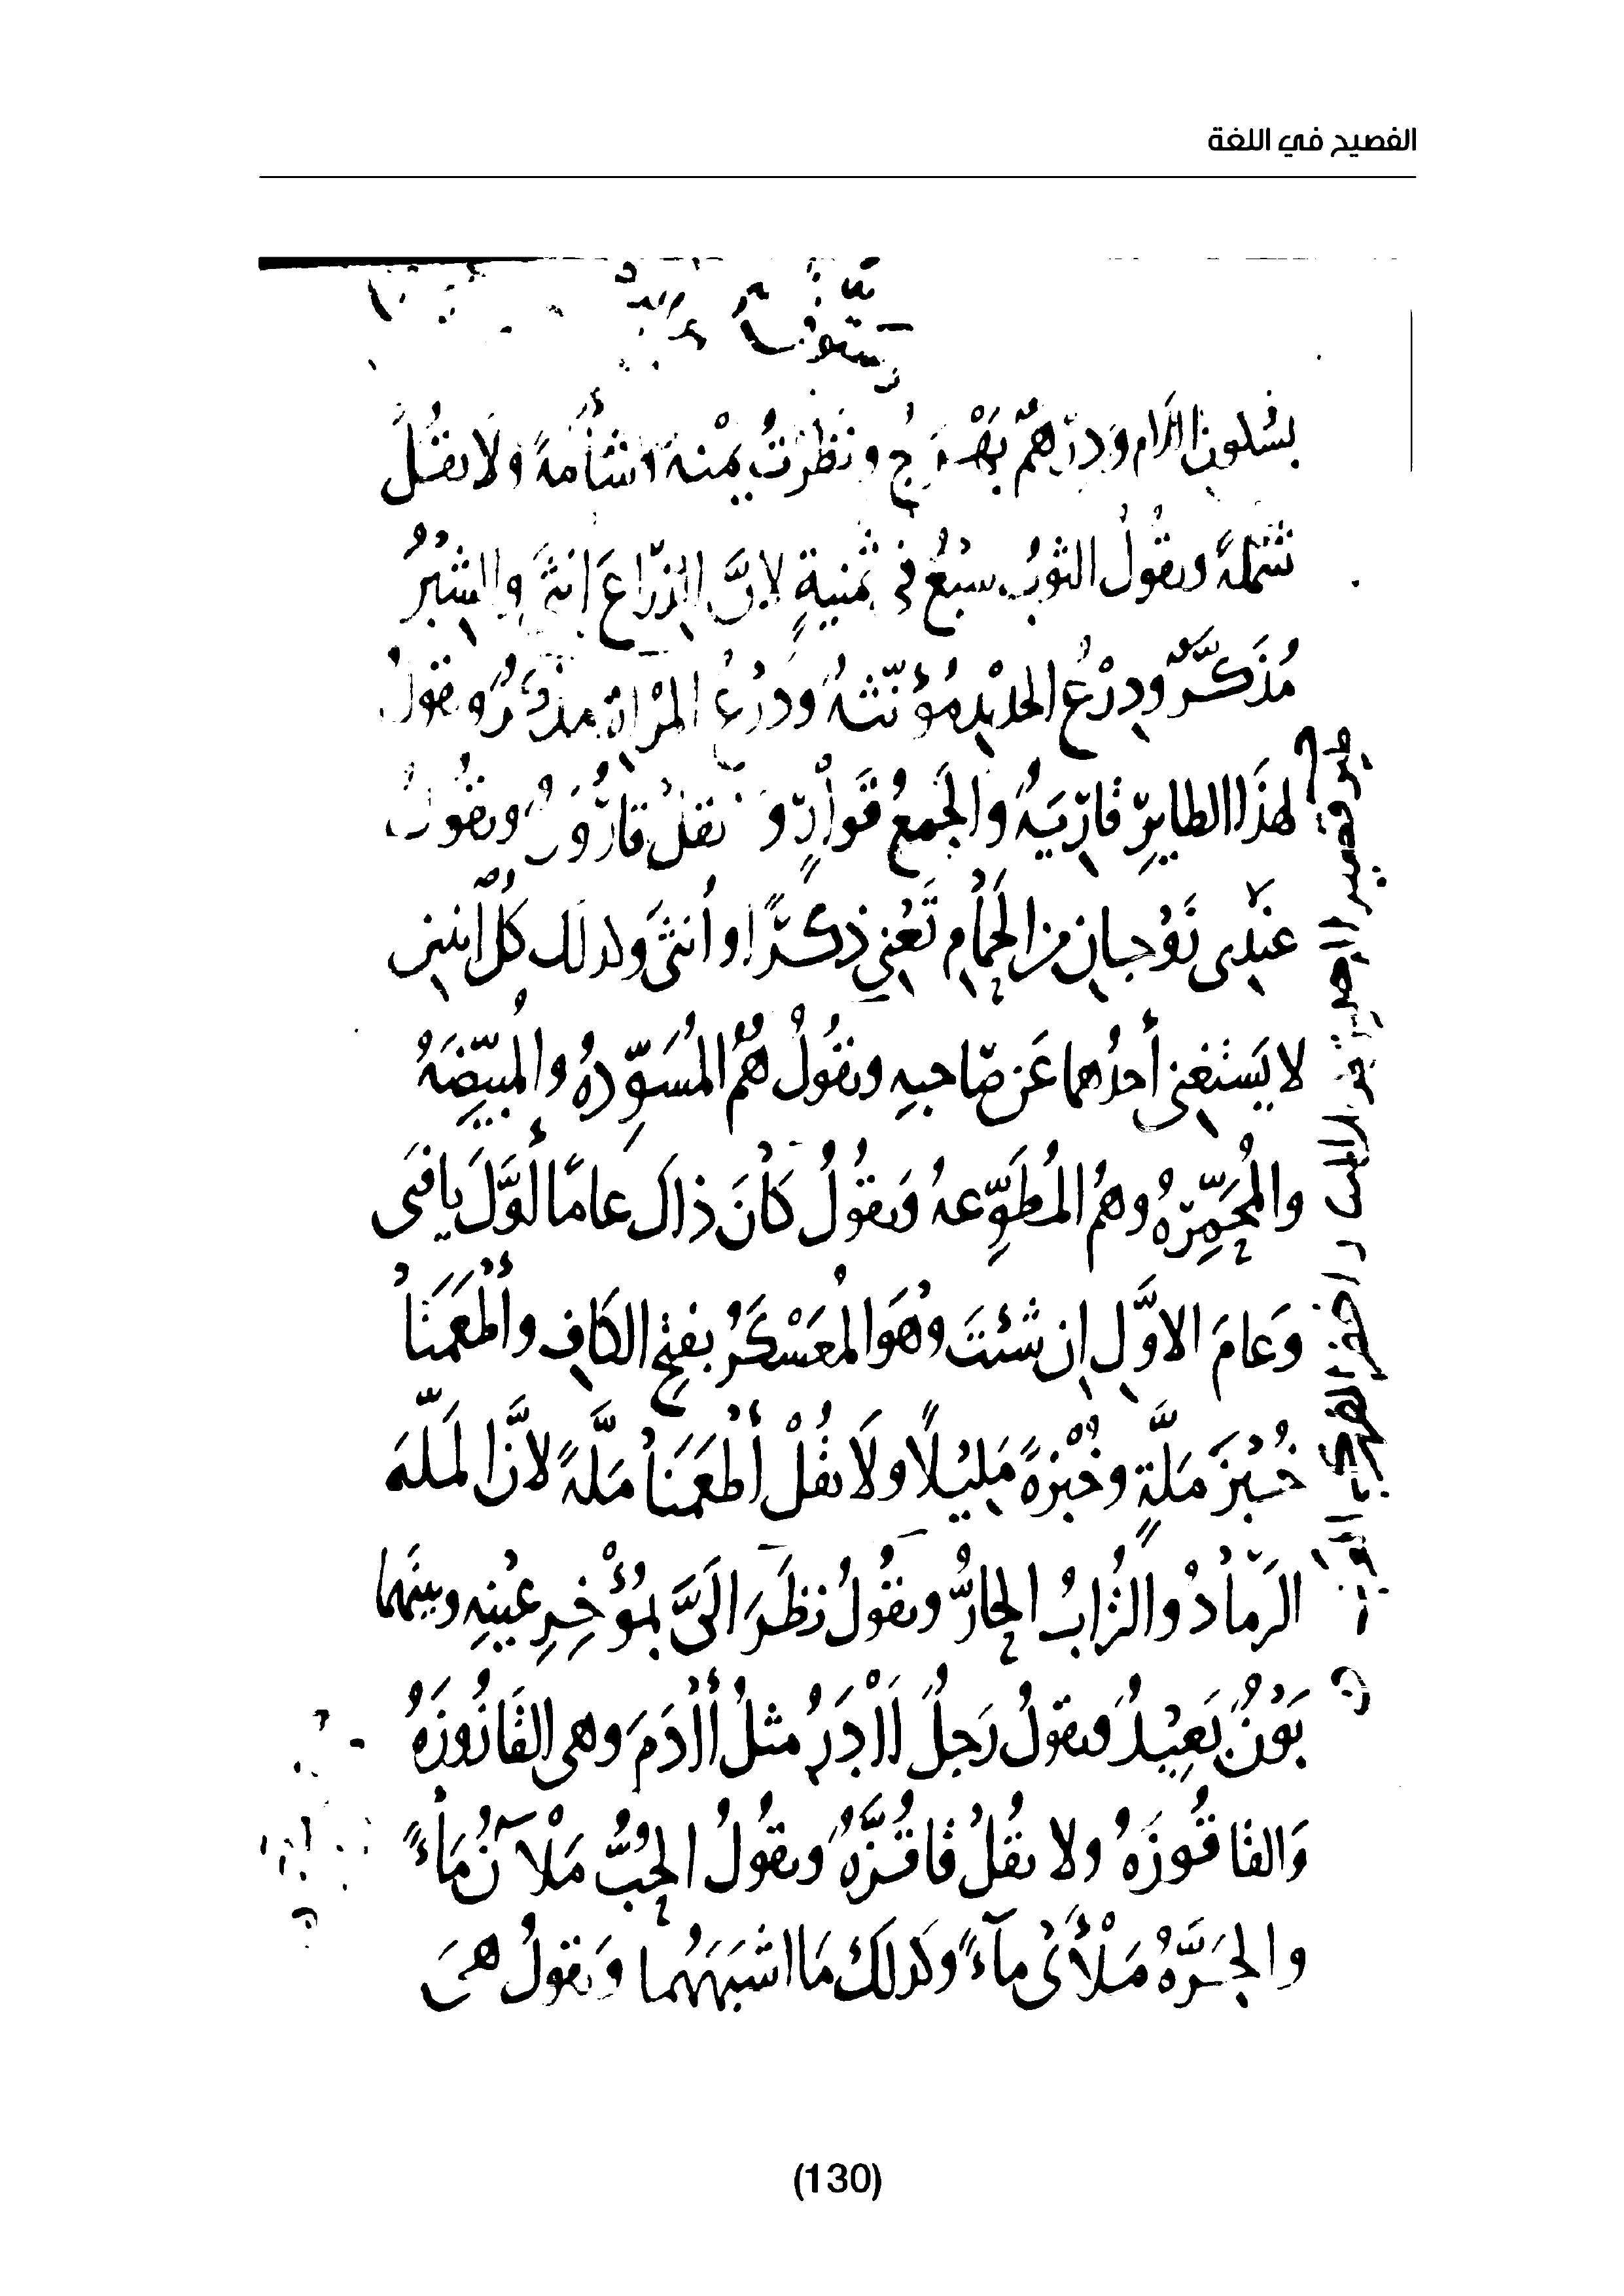 الفصيح في اللغة
بسُكون الرام ودِرْهمٌ بَهْرَجٌ ونَظَرْتُ يَمْنَةً وشَأْمَةً ولَا تقُلْ
شَمْلَةً وتقُولُ الثوبُ سَبْعٌ في ثمنيةٍ لِانَّ الذِّراعَ انثَى والشِّبْرُ
مُذَكَّرٌ ودِرْعُ الحَدِيدِ مُؤنّثَةٌ ودِرْعُ المَرْاةِ مذكَّرٌ وتقولُ
لهذَا الطايِرِ قارِيَةٌ والجَمعُ قَوارٍ و تقلْ قارُّورٌ وتقولُ
عنْدِى زَوْجانِ مِنَ الحَمَامِ تَعْنِي ذكَرًا وأُنثَى وكذلك كلُّ اثنين
لا يَستَغنِي أحدُهما عَن صَاحبِهِ وتقُولُ هُمُ المُسَوِّدَةُ والمُبيِّضَةُ
والمُحَمِّرَةُ وهُمُ المُطَّوِّعةُ وَتقُولُ كَانَ ذاكَ عامًا أَوَّلَ يا فتَى
وَعامَ الاوَّلِ إن شئتَ وهُوَ المُعَسْكَرُ بفتحِ الكافِ وأَطْعَمَنَا
خُبْزَ مَلَّةٍ وخُبْزةً مَلِيلًا ولَا تقُلْ أَطْعَمَنَا مَلَّةً لانَّ المَلَّةَ
الرَّمَادُ والتُّرابُ الحارُّ وتقُولُ نظَرَ الَىَّ بمُؤْخِرِ عَيْنِهِ وبينَهما
بَوْنٌ بَعِيْدٌ وتقولُ رَجلٌ اادَرُ مثلُ أادَمَ وهى القَازُوزَةُ
وَالقاقُوزَةُ ولا تقُلْ قاقُزَّةٌ وتقولُ الحُبُّ مَلْآنُ مَاءً
والجَرَّةُ مَلْأَىْ مآءً وكذلكَ مَا اشبَهَهُما وَتقولُ هىَ
(130)